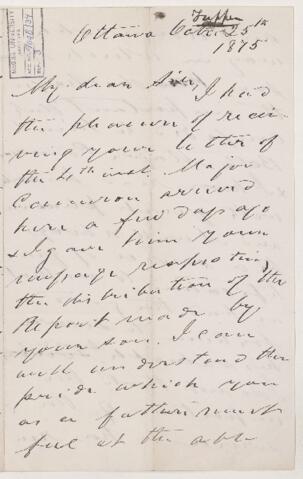 Tupper
Ottawa Octr 25th
1875
My dear Sir,
I had
the pleasure of recei-
ving your letter of
the 4th inst. Major
Cameron arrived
here a few days ago
& I gave him your
message respecting
the distribution of the
Report made by
your son. I can
well understand the
pride which you
as a father must
feel at the able